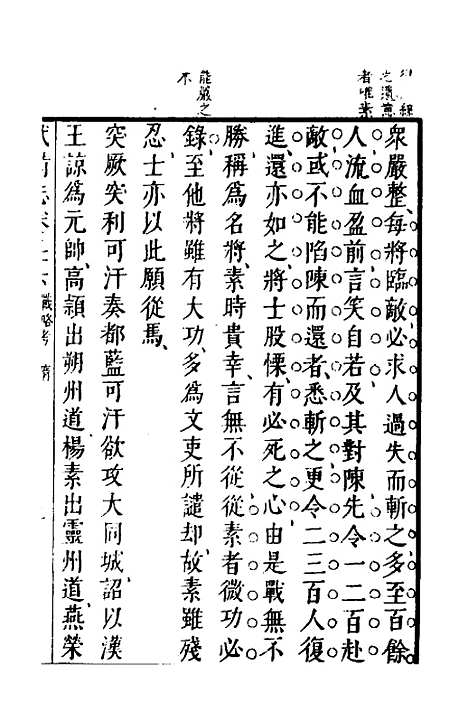 者唯素
能嚴之
不
衆嚴整每將臨敵必求人過失而斬之多至百餘
人流血盈前言笑自若及其對陳先令一二百赴
敵或不能陷陳而還者悉斬之更令二三百人復
進還亦如之將士股慄有必死之心由是戰無不
勝稱爲名將素時貴幸言無不從從素者微功必
錄至他將雖有大功多爲文吏所譴却故素雖殘
忍士亦以此願從焉
突厥突利可汗奏都藍可汗欲攻大同城詔以漢
王諒爲元帥高熲出朔州道楊素出靈州道燕榮
戰略考 隋